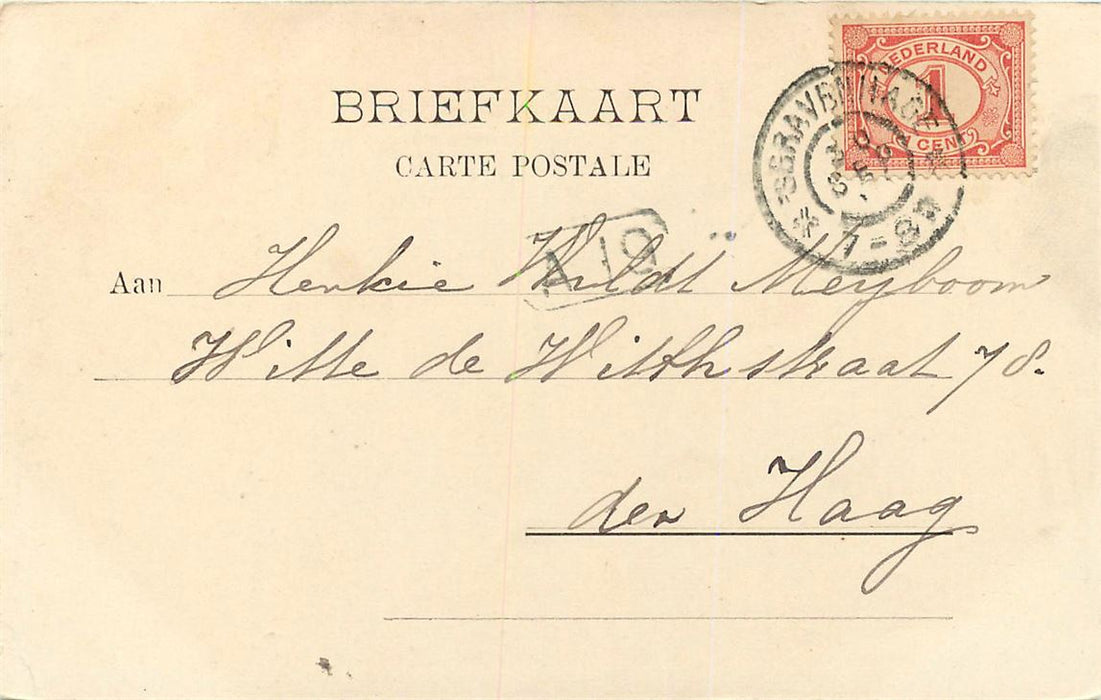 BRIEFKAART
CARTE POSTALE
NEDERLAND
1
1 CENT
'SGRAVENHAGE
A 19
Aan Henkie Muldt Meyboom
Witte de Withstraat 78.
den Haag